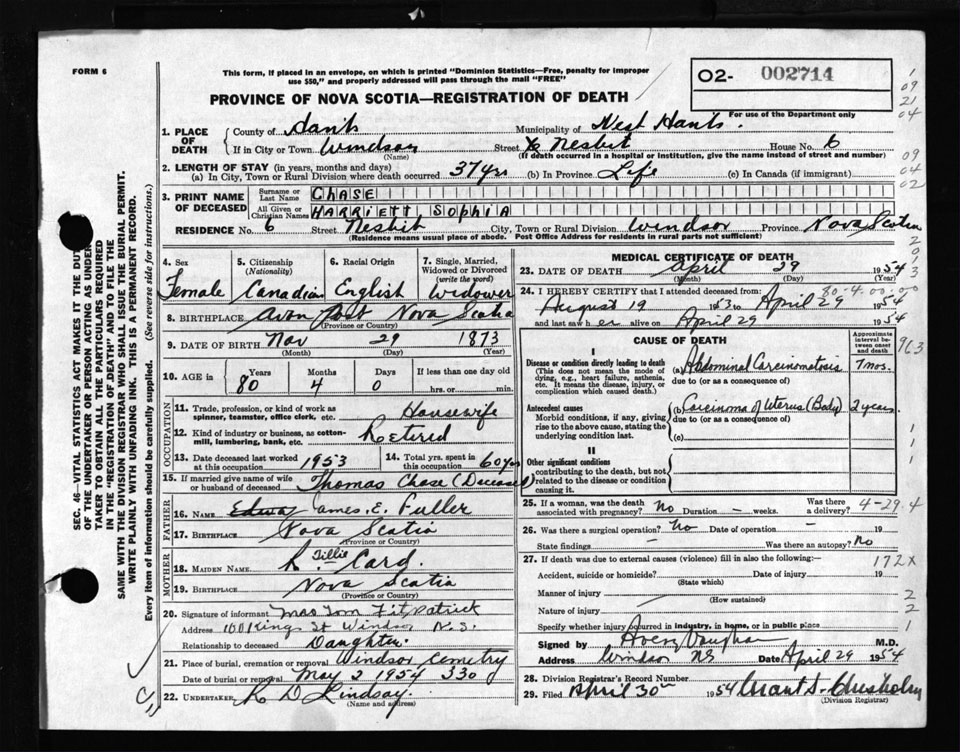 FORM 6
This form, if placed in an envelope, on which is printed "Dominion Statistics—Free, penalty for improper
use $50," and properly addressed will pass through the mail "FREE"
O2- 002714
For use of the Department only
PROVINCE OF NOVA SCOTIA—REGISTRATION OF DEATH
1. PLACE OF DEATH
County of Hants Municipality of West Hants.
If in City or Town Windsor Street Nesbit House No. 6
(Name) (If death occurred in a hospital or institution, give the name instead of street and number)
2. LENGTH OF STAY (in years, months and days)
(a) In City, Town or Rural Division where death occurred 37 yrs (b) In Province Life (c) In Canada (if immigrant)
3. PRINT NAME OF DECEASED
Surname or Last Name CHASE
All Given or Christian Names HARRIETT, SOPHIA
RESIDENCE No. 6 Street Nesbit City, Town or Rural Division Windsor Province Nova Scotia
(Residence means usual place of abode. Post Office Address for residents in rural parts not sufficient)
4. Sex
Female
5. Citizenship (Nationality)
Canadian
6. Racial Origin
English
7. Single, Married, Widowed or Divorced (write the word)
Widower
8. BIRTHPLACE Avon Port Nova Scotia
(Province or Country)
9. DATE OF BIRTH Nov 29 1873
(Month) (Day) (Year)
10. AGE in Years Months Days If less than one day old
80 4 0 hrs. or min.
OCCUPATION
11. Trade, profession, or kind of work as spinner, teamster, office clerk, etc. Housewife
12. Kind of industry or business, as cotton-mill, lumbering, bank, etc. Retired
13. Date deceased last worked at this occupation 1953
14. Total yrs. spent in this occupation 60 yrs
15. If married give name of wife or husband of deceased Thomas Chase (Deceased)
FATHER
16. NAME James. E. Fuller
17. BIRTHPLACE Nova Scotia
(Province or Country)
MOTHER
18. MAIDEN NAME Tillie Card
19. BIRTHPLACE Nova Scotia
(Province or Country)
20. Signature of informant Mrs Tom Fitzpatrick
Address Kings St Windsor N.S.
Relationship to deceased Daughter.
21. Place of burial, cremation or removal Windsor Cemetry
Date of burial or removal May 2 1954 330
22. UNDERTAKER R D Lindsay.
(Name and address)
MEDICAL CERTIFICATE OF DEATH
23. DATE OF DEATH April 29 1954
24. I HEREBY CERTIFY that I attended deceased from:
August 19 1953 to April 29 1954
and last saw her alive on April 29 1954
CAUSE OF DEATH
Approximate interval between onset and death
I
Disease or condition directly leading to death
(This does not mean the mode of dying, e.g., heart failure, asthenia, etc. It means the disease, injury, or complication which caused death.)
(a) Abdominal Carcinomatosis 7 mos.
due to (or as a consequence of)
Antecedent causes
Morbid conditions, if any, giving rise to the above cause, stating the underlying condition last.
(b) Carcinoma of Uterus (Body) 2 years.
due to (or as a consequence of)
(c)
II
Other significant conditions
contributing to the death, but not related to the disease or condition causing it.
25. If a woman, was the death associated with pregnancy? No Duration - weeks. Was there a delivery? 4-29.4
26. Was there a surgical operation? No Date of operation - 19
State findings - Was there an autopsy? No
27. If death was due to external causes (violence) fill in also the following:— 172X
Accident, suicide or homicide? Date of injury 19
(State which)
Manner of injury 2
(How sustained)
Nature of injury 2
Specify whether injury occurred in industry, in home, or in public place 1
Signed by Avery Vaughan M.D.
Address Windsor NS Date April 29 1954
28. Division Registrar's Record Number
29. Filed April 30 1954 Grant S. Chisholm
(Division Registrar)
SEC. 46—VITAL STATISTICS ACT MAKES IT THE DUTY
OF THE UNDERTAKER OR PERSON ACTING AS UNDER-
TAKER TO OBTAIN ALL THE PARTICULARS REQUIRED
IN THE "REGISTRATION OF DEATH" AND TO FILE THE
SAME WITH THE DIVISION REGISTRAR WHO SHALL ISSUE THE BURIAL PERMIT.
WRITE PLAINLY WITH UNFADING INK. THIS IS A PERMANENT RECORD.
Every item of information should be carefully supplied. (See reverse side for instructions.)